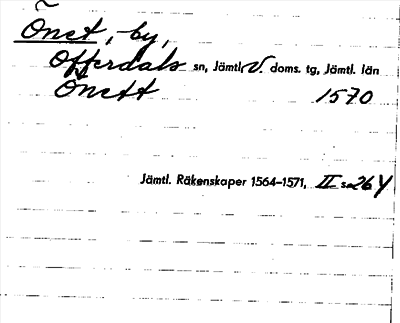 Önet, by,
Offerdals sn, Jämtl. V. doms. tg, Jämtl. län
Önett 1570
Jämtl. Räkenskaper 1564–1571, II s. 264